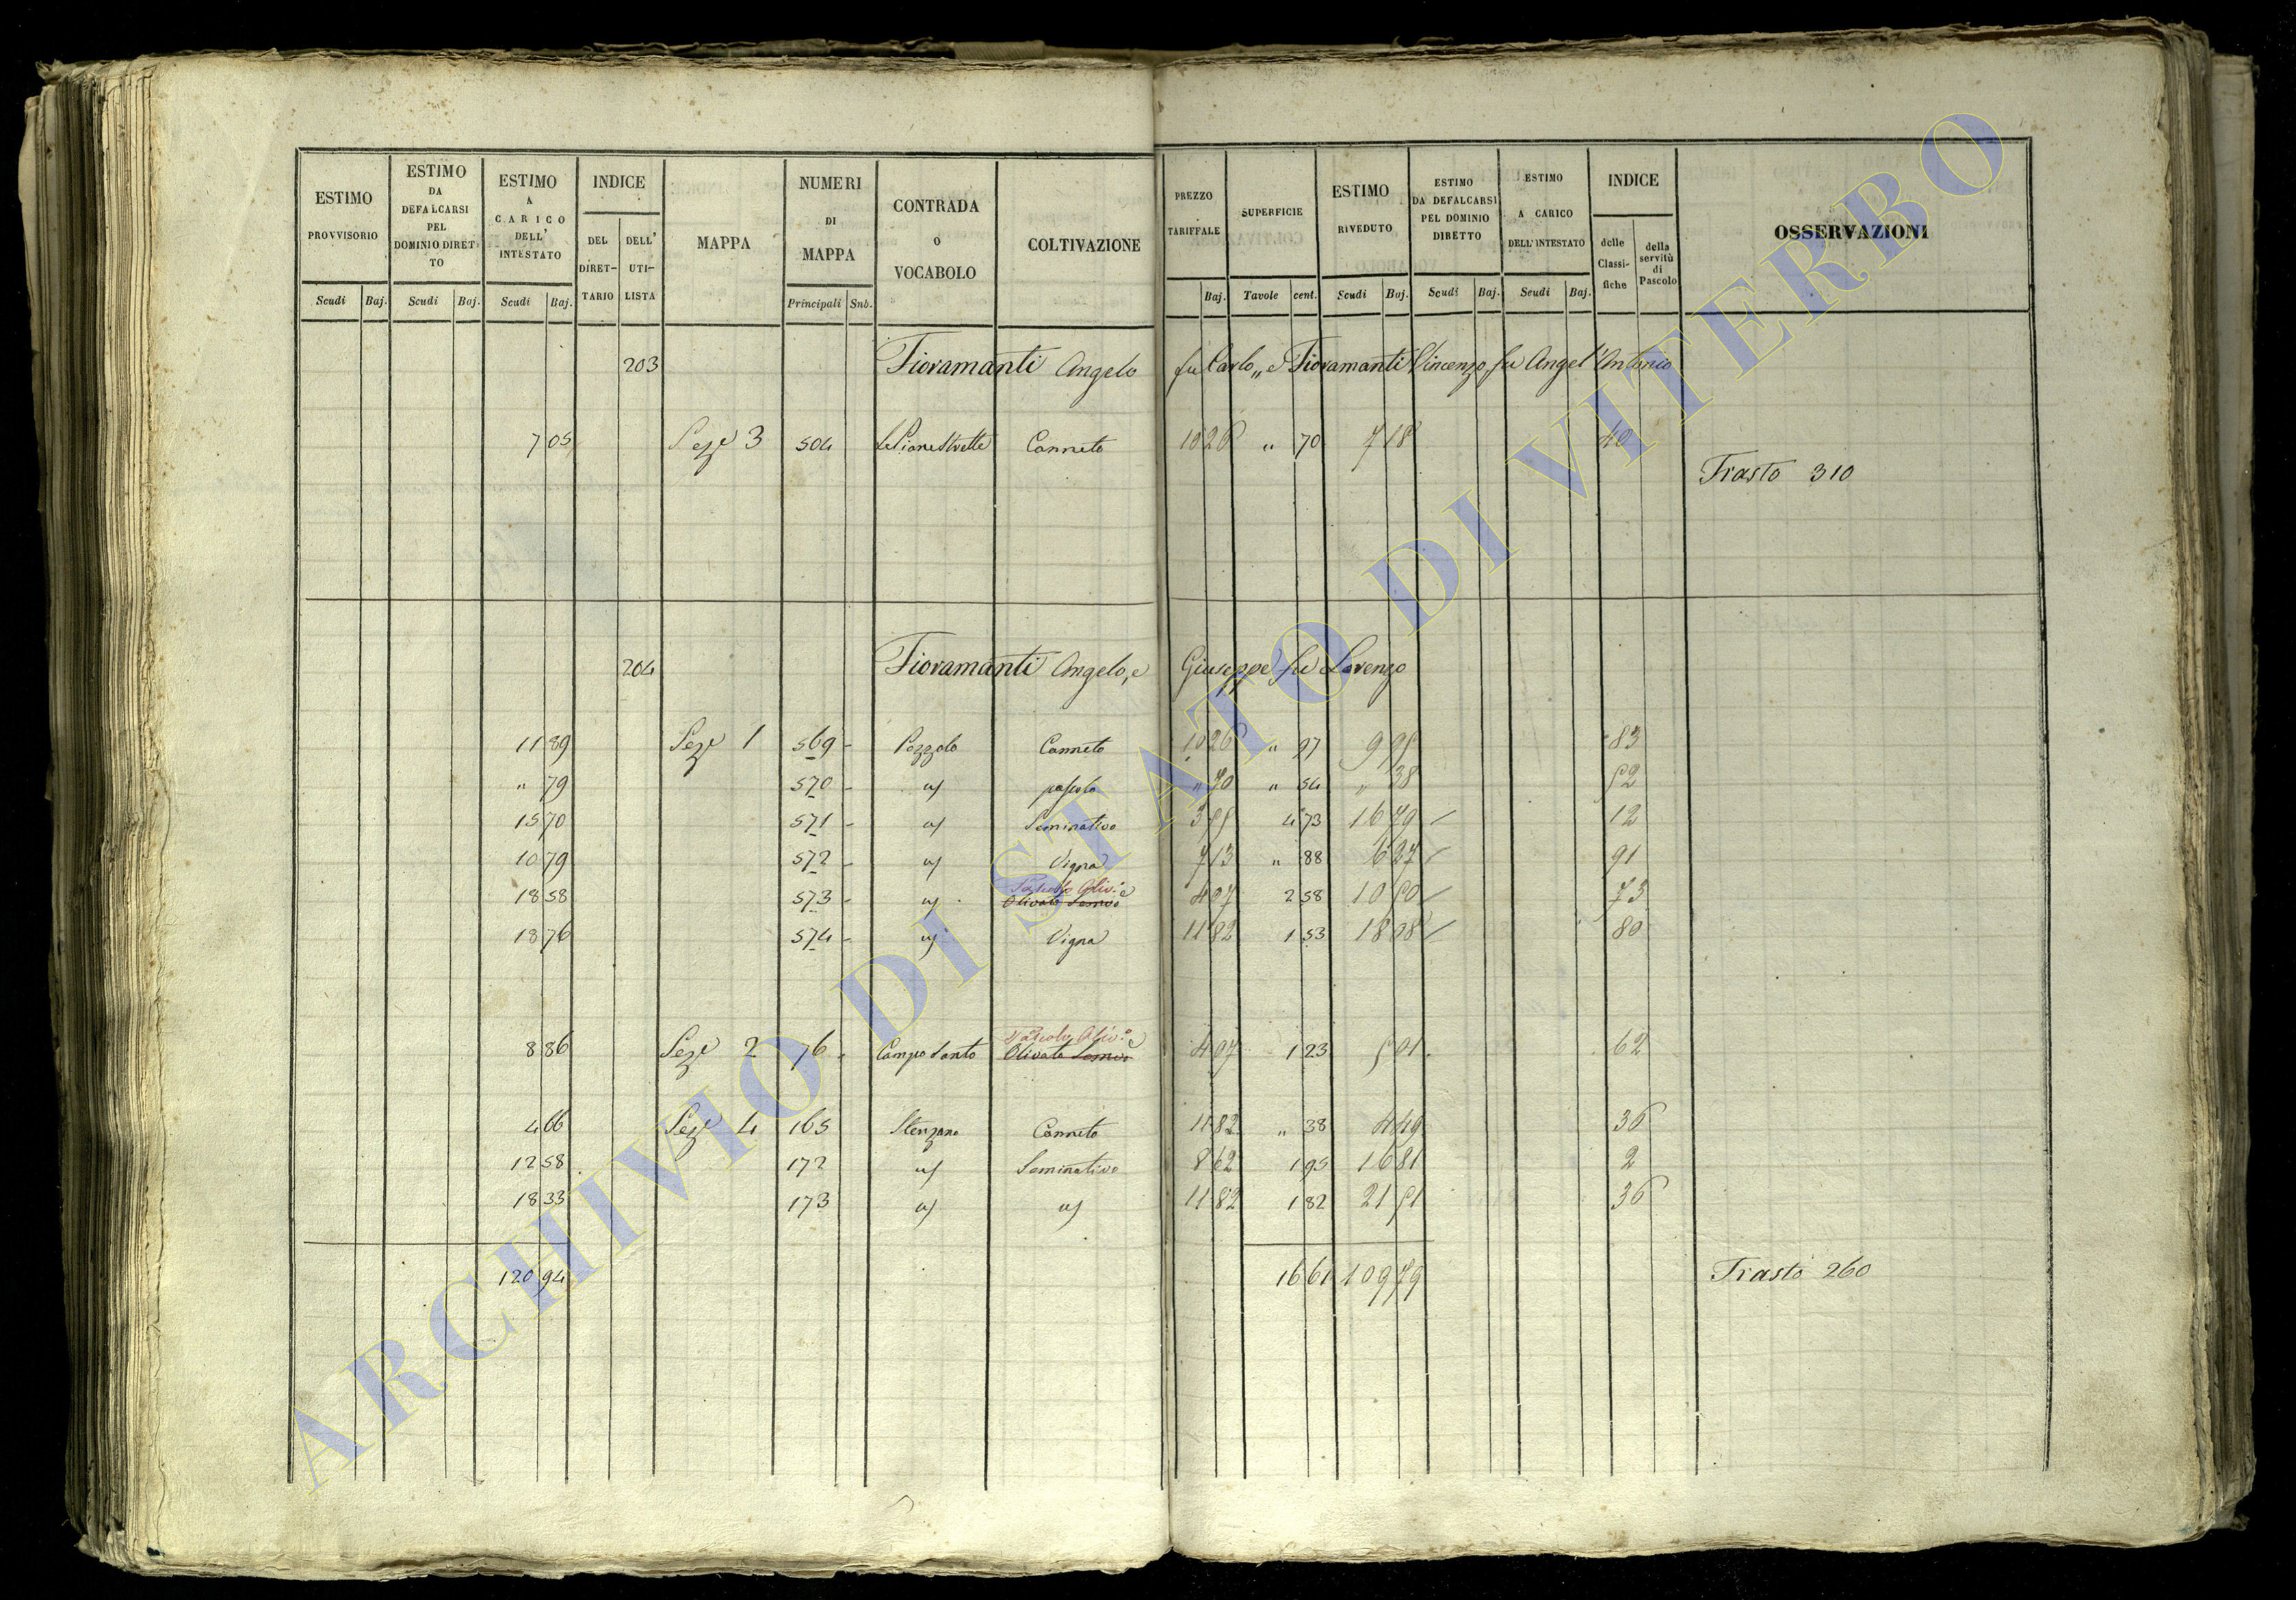 ESTIMO PROVVISORIO Scudi Baj.
ESTIMO DA DEFALCARSI PEL DOMINIO DIRETTO Scudi Baj.
ESTIMO A CARICO DELL' INTESTATO Scudi Baj.
INDICE DEL DIRET-TARIO DELL' UTI-LISTA
MAPPA
NUMERI DI MAPPA Principali Sub.
CONTRADA O VOCABOLO
COLTIVAZIONE
PREZZO TARIFFALE Baj.
SUPERFICIE Tavole cent.
ESTIMO RIVEDUTO Scudi Baj.
ESTIMO DA DEFALCARSI PEL DOMINIO DIRETTO Scudi Baj.
ESTIMO A CARICO DELL' INTESTATO Scudi Baj.
INDICE delle Classi-fiche della servitù di Pascolo
OSSERVAZIONI
203 Fioramanti Angelo fu Carlo „ e Fioramanti Vincenzo, fu Angel'Antonio
7 05 Seze 3 504 Canneto 10 26 „ 70 7 18 40
Trasto 310
204 Fioramanti Angelo, e Giuseppe fu Lorenzo
11 89 Seze 1 569 - Pozzolo Canneto 10 26 „ 97 9 95 83
„ 79 570 - „ pascolo „ 70 „ 54 „ 38 52
15 70 571 - „ Seminativo 3 55 4 73 16 79 12
10 79 572 - „ Vigna 7 13 „ 88 6 27 91
18 58 573 - „ Pascolo Oliv.o Olivato 4 07 2 58 10 50 73
18 76 574 - „ Vigna 11 82 1 53 18 08 80
8 86 Seze 2 76 - Campo Santo Pascolo Oliv.o Olivato 4 07 1 23 5 01 62
4 66 Seze 4 165 Stenzano Canneto 11 82 „ 38 4 49 36
12 58 172 „ Seminativo 8 62 1 95 16 81 2
18 33 173 „ „ 11 82 1 82 21 51 36
120 94 16 61 109 79 Trasto 260
ARCHIVIO DI STATO DI VITERBO